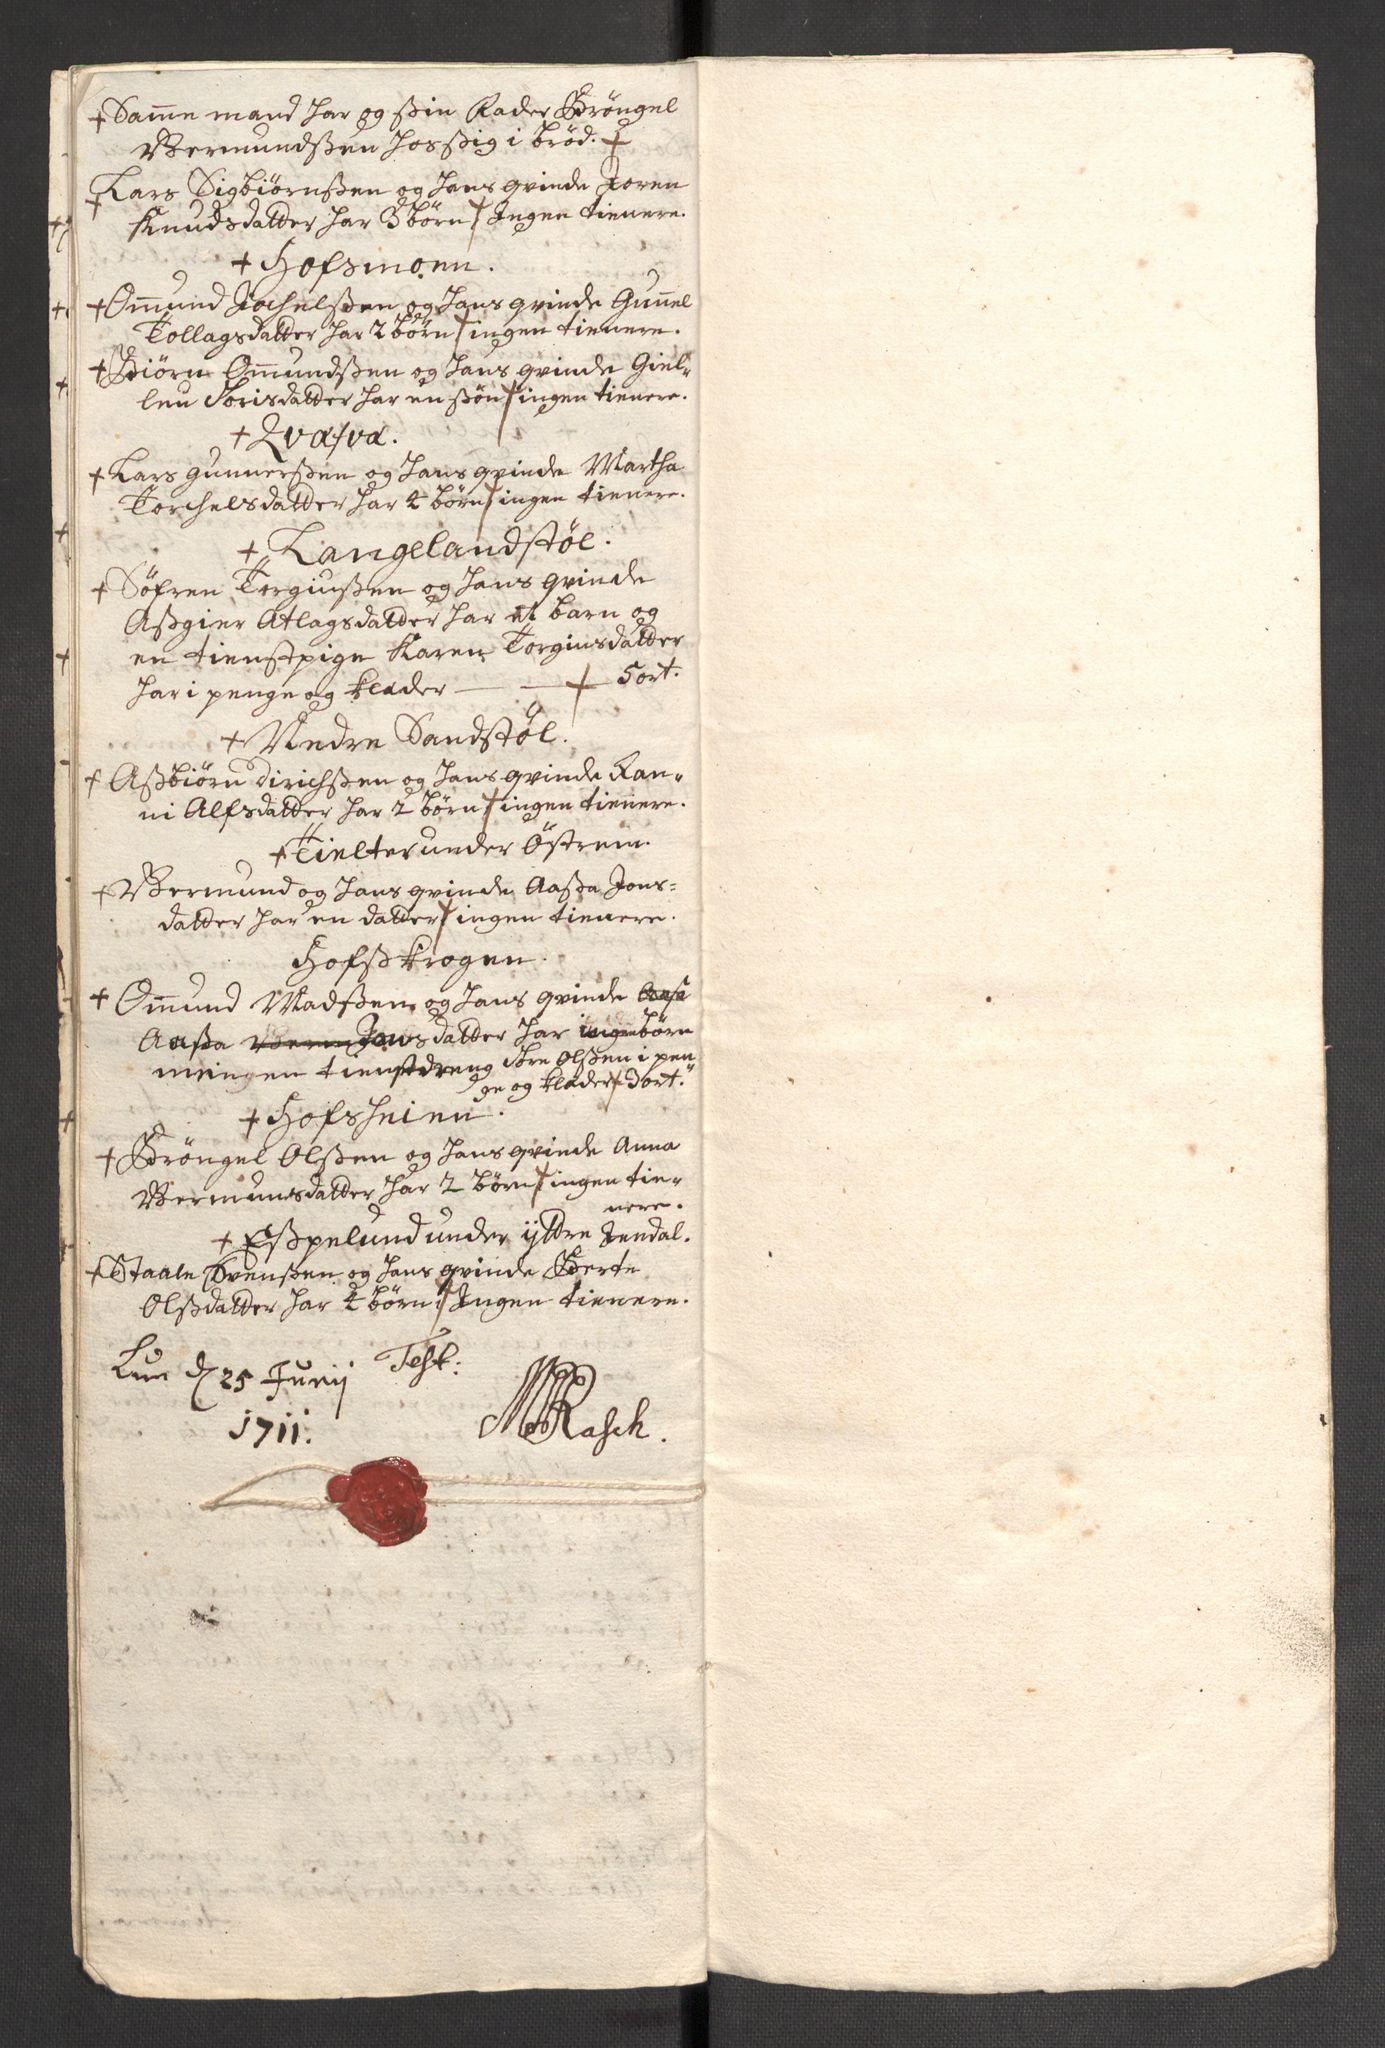 + Samme mand har og ßin Fader Brøngel
Vermundßen hos ßig i brød. +
+ Lars Sigbiørnßen og hans qvinde Joren
Knudsdatter har 3 børn + Ingen tienere.
+ Hofsmoen.
+ Ommund Jochelßen og hans qvinde Gunnel
Tollagsdatter har 2 børn + ingen tienere.
+ Biørn Ommundßen og hans qvinde Giel„
len Torisdatter har en ßøn + ingen tienere.
+ Qvafva.
+ Lars Gunnerßen og hans qvinde Martha
Torchelsdatter har 4 børn + ingen tienere.
+ Langelandstøl.
+ Søfren Torgiusßen og hans qvinde
Aßgier Atlagsdatter har et barn og
en tienstpige Karen Torgiusdatter
har i penge og klæder — — + 5 ort.
+ Nedre Sandstøl.
+ Aßbiørn Dirichßen og hans qvinde Ran„
ni Alfsdatter har 2 børn + ingen tienere.
+ Tielter under Östrem.
+ Vermund og hans qvinde Aaßa Jons=
datter har en datter + ingen tienere.
Hofsßkrogen.
+ Ommund Madßen og hans qvinde Aasa
Aaßa Jonsdatter har ingen børn
men en tienstdreng Tore Olßen i pen
ge og klæder + 3 ort.
+ Hofsheien.
+ Brøngel Olßen og hans qvinde Anna
Vermunsdatter har 2 børn + ingen tie„
nere.
+ Eßpelund under ÿttre Jendal.
+ Staale Svenßen og hans qvinde Berte
Olßdatter har 4 børn + Ingen tienere.
Lun d 25 Junij Test:
1711. Rasch.